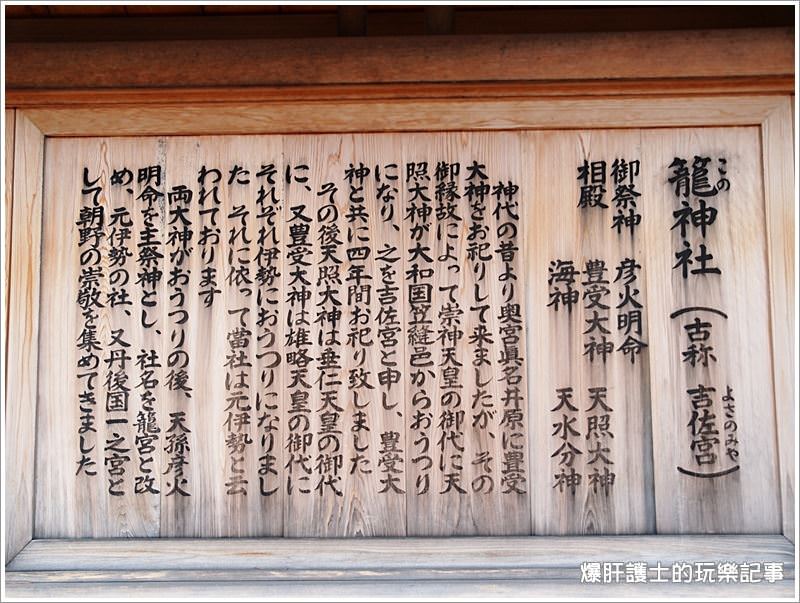 籠神社（古称 吉佐宮）
この
よさのみや
御祭神 彦火明命
相殿 豊受大神 天照大神
海神 天水分神
神代の昔より奥宮眞名井原に豊受
大神をお祀りして来ましたが その
御縁故によって崇神天皇の御代に天
照大神が大和国笠縫邑からおうつり
になり、之を吉佐宮と申し、豊受大
神と共に四年間お祀り致しました
その後天照大神は垂仁天皇の御代
に、又豊受大神は雄略天皇の御代に
それぞれ伊勢におうつりになりまし
た それに依って當社は元伊勢と云
われております
両大神がおうつりの後、天孫彦火
明命を主祭神とし、社名を籠宮と改
め、元伊勢の社、又丹後国一之宮と
して朝野の崇敬を集めてきました
爆肝護士的玩樂記事